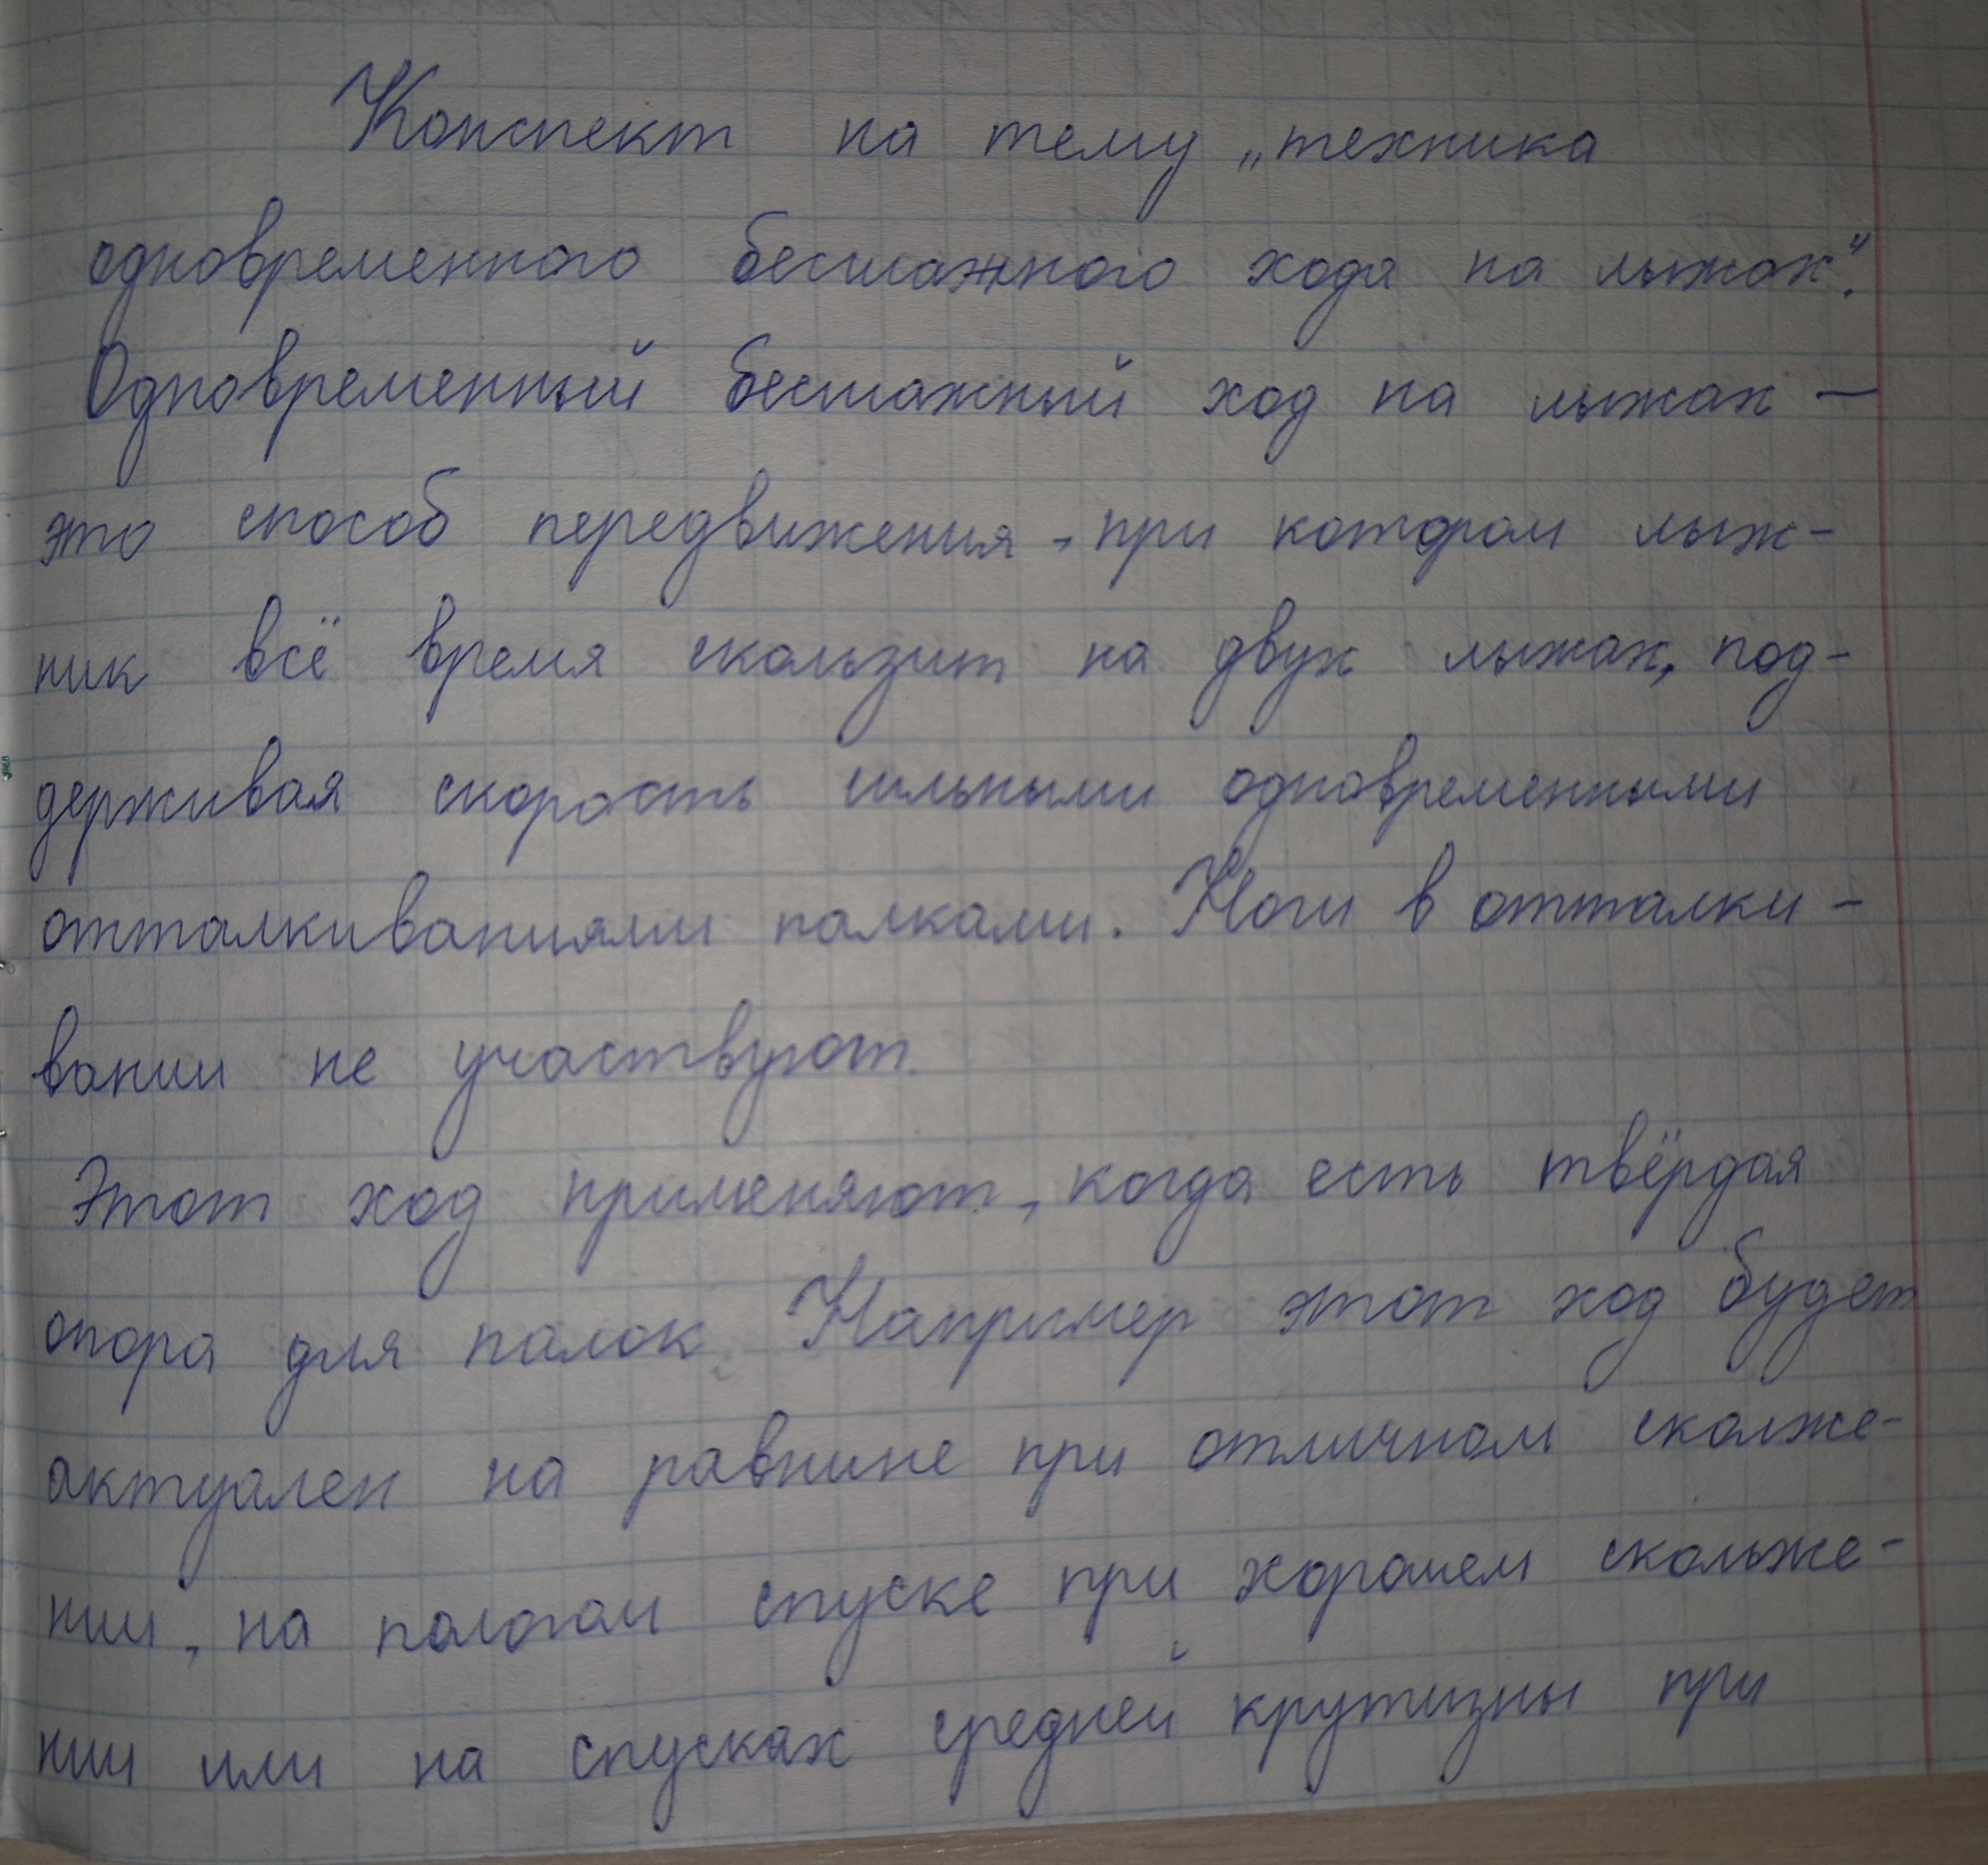 Конспект на тему „техника
одновременного бесшажного хода на лыжах".
Одновременный бесшажный ход на лыжах —
это способ передвижения, при котором лыж-
ник всё время скользит на двух лыжах, под-
держивая скорость сильными одновременными
отталкиваниями палками. Ноги в отталки-
вании не участвуют.
Этот ход применяют, когда есть твёрдая
опора для палок. Например этот ход будет
актуален на равнине при отличном сколже-
нии, на пологом спуске при хорошем скольже-
нии или на спусках средней крутизны при